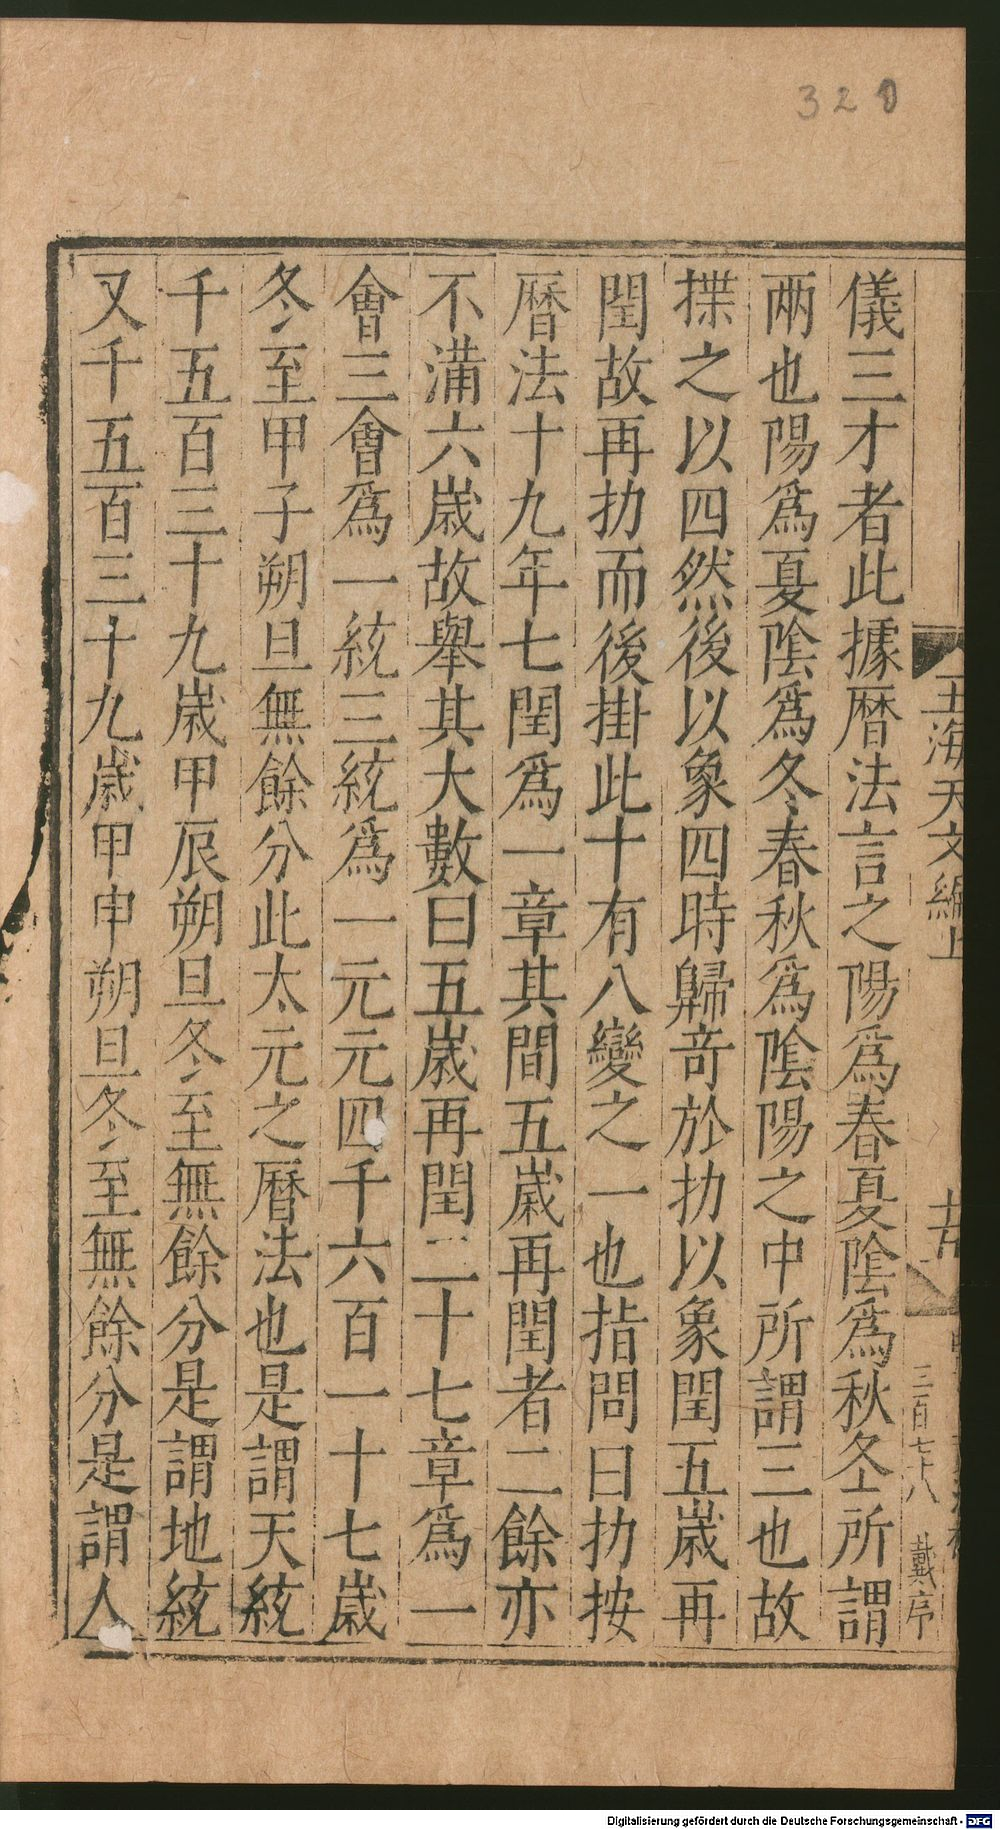 320
儀三才者此據曆法言之陽爲春夏隂爲秋冬所謂
兩也陽爲夏隂爲冬春秋爲隂陽之中所謂三也故
揲之以四然後以象四時歸竒於扐以象閏五歲再
閏故再扐而後掛此十有八變之一也指問曰扐按
曆法十九年七閏爲一章其間五歲再閏者二餘亦
不滿六歲故舉其大數曰五歲再閏二十七章爲一
會三會爲一統三統爲一元元四千六百一十七歲
冬至甲子朔旦無餘分此太元之曆法也是謂天統
千五百三十九歲甲辰朔旦冬至無餘分是謂地統
又千五百三十九歲甲申朔旦冬至無餘分是謂人
玉海天文編上
三百七十八
戴序
Digitalisierung gefördert durch die Deutsche Forschungsgemeinschaft - DFG